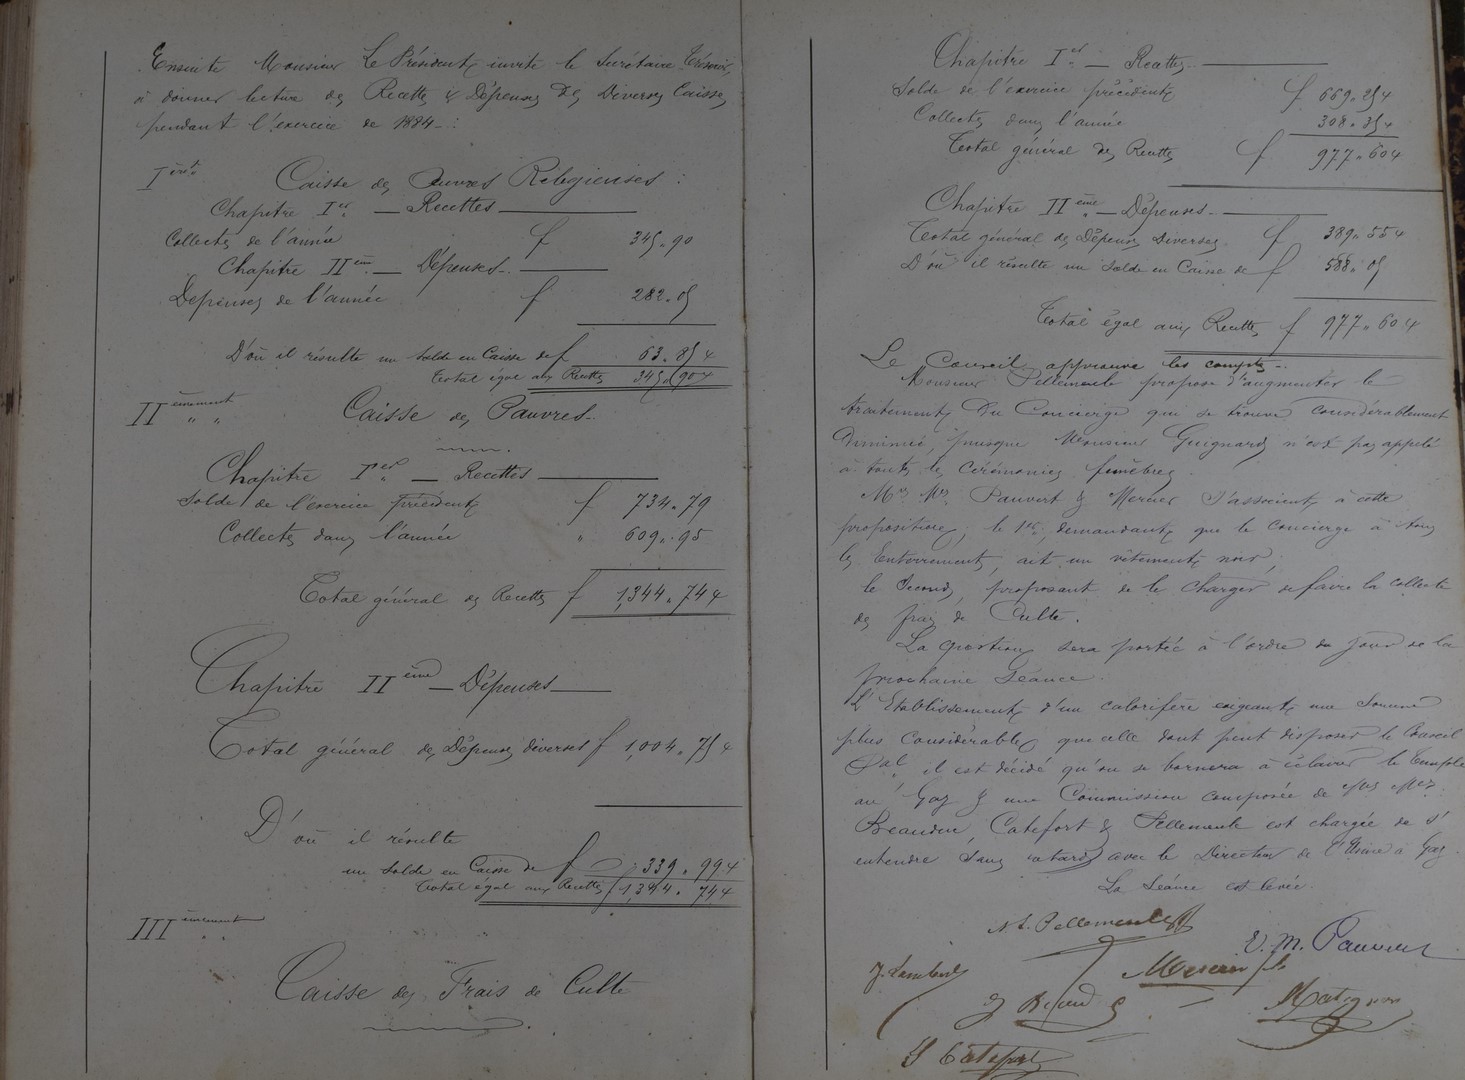 Ensuite Monsieur Le Président invite le Secrétaire Trésorier,
à donner lecture des Recettes & Dépenses des Diverses Caisses
pendant l'exercice de 1884 :
I ent Caisse des Œuvres Religieuses :
Chapitre Ier. — Recettes —
Collectes de l'année f 345.90
Chapitre IIème — Dépenses. —
Dépenses de l'année f 282.05
D'où il résulte un solde en Caisse de f 63.85
Total égal aux Recettes 345.90
IIèmement Caisse des Pauvres
Chapitre Ier. — Recettes —
Solde de l'exercice précédent f 734.79
Collectes dans l'année " 609.95
Total général des Recettes f 1,344.74
Chapitre IIème — Dépenses —
Total général des Dépenses diverses f 1,004.75
D'où il résulte
un solde en Caisse de f 339.99
Total égal aux Recettes f 1,344.74
IIIèmement
Caisse des Frais de Culte
Chapitre Ier. — Recettes —
Solde de l'exercice précédent f 669.25
Collectes dans l'année 308.35
Total général des Recettes f 977.60
Chapitre IIème — Dépenses —
Total général des Dépenses Diverses. f 389.55
D'où il résulte un solde en Caisse de f 588.05
Total égal aux Recettes f 977.60
Le Conseil approuve les comptes.
Monsieur Pellemeule propose d'augmenter le
traitement du Concierge qui se trouve considérablement
diminué, puisque Monsieur Guignard n'est pas appelé
à toutes les cérémonies funèbres.
Mrs Mrs Pauvert & Mercier s'associent à cette
proposition; le 1er, demandant que le concierge à tous
les Enterrements, ait un vêtement noir,
le Second, proposant de le charger de faire la collecte
des frais de Culte.
La question sera portée à l'ordre du jour de la
prochaine Séance.
L'Etablissement d'un calorifère exigeant une Somme
plus considérable que celle dont peut disposer le Conseil
Pal, il est décidé qu'on se bornera à éclairer le Temple
au Gaz & une Commission composée de Mrs Mrs
Beaudur, Catefort & Pellemeule est chargée de s'
entendre sans retard avec le Directeur de l'Usine à Gaz.
La Séance est levée.
Pellemeule
E. M. Pauvert
J. Lambert
Mercier fs
Matignon
Catefort